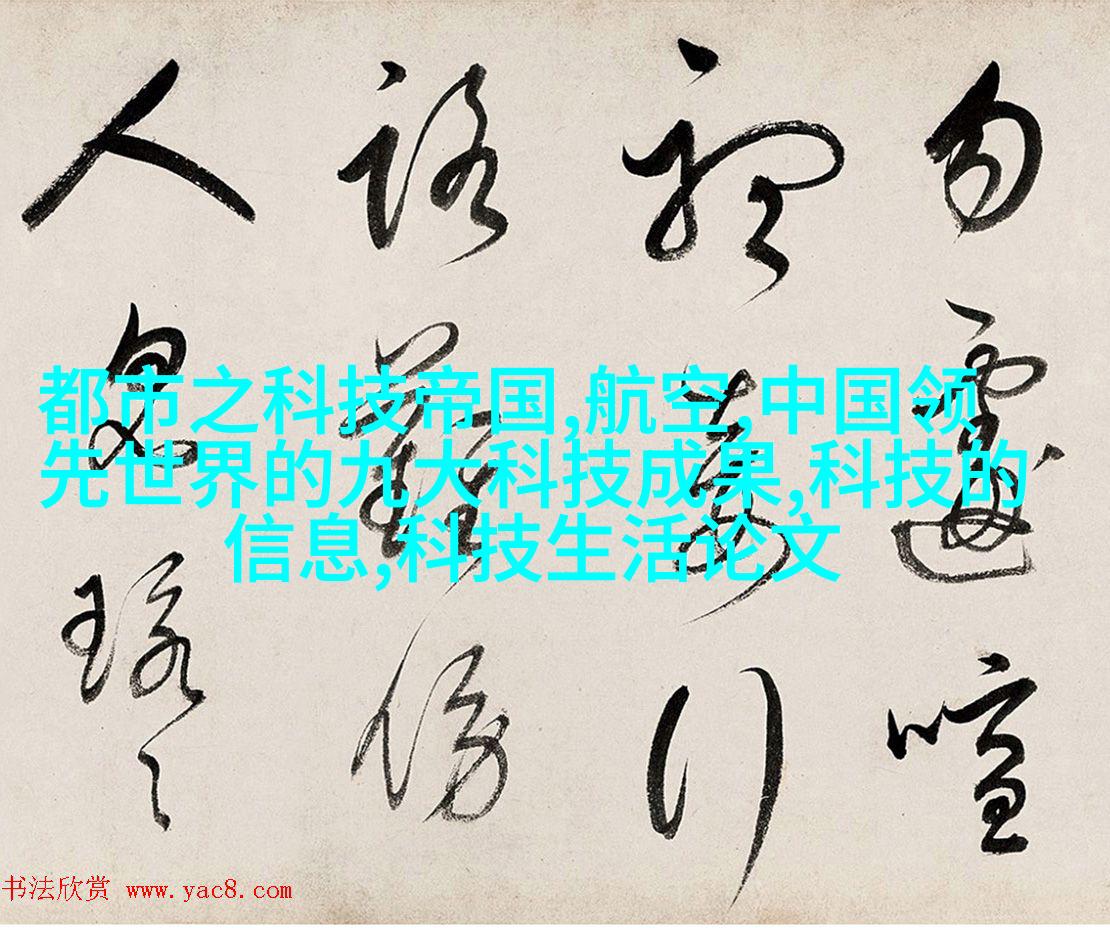 勿遽喧
行
路難傍
人
都市之科技帝国,航空,中国领
先世界的九大科技成果,科技的
信息,科技生活论文
书法欣赏 www.yac8.com